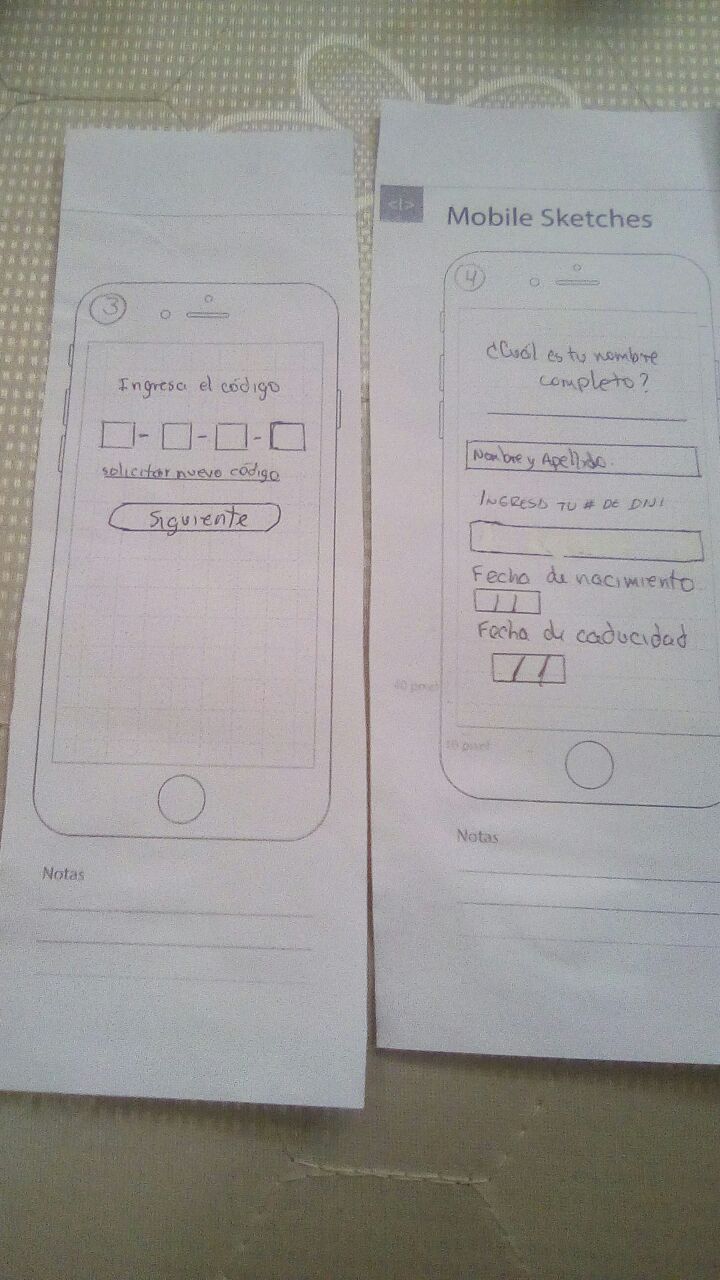 3
Ingresa el código
- - -
solicitar nuevo código
Siguiente
Notas
<|>
Mobile Sketches
4
¿Cuál es tu nombre
completo?
Nombre y Apellido.
INGRESA TU # DE DNI
Fecha de nacimiento
//
Fecha de caducidad
//
40 pixel
10 pixel
Notas